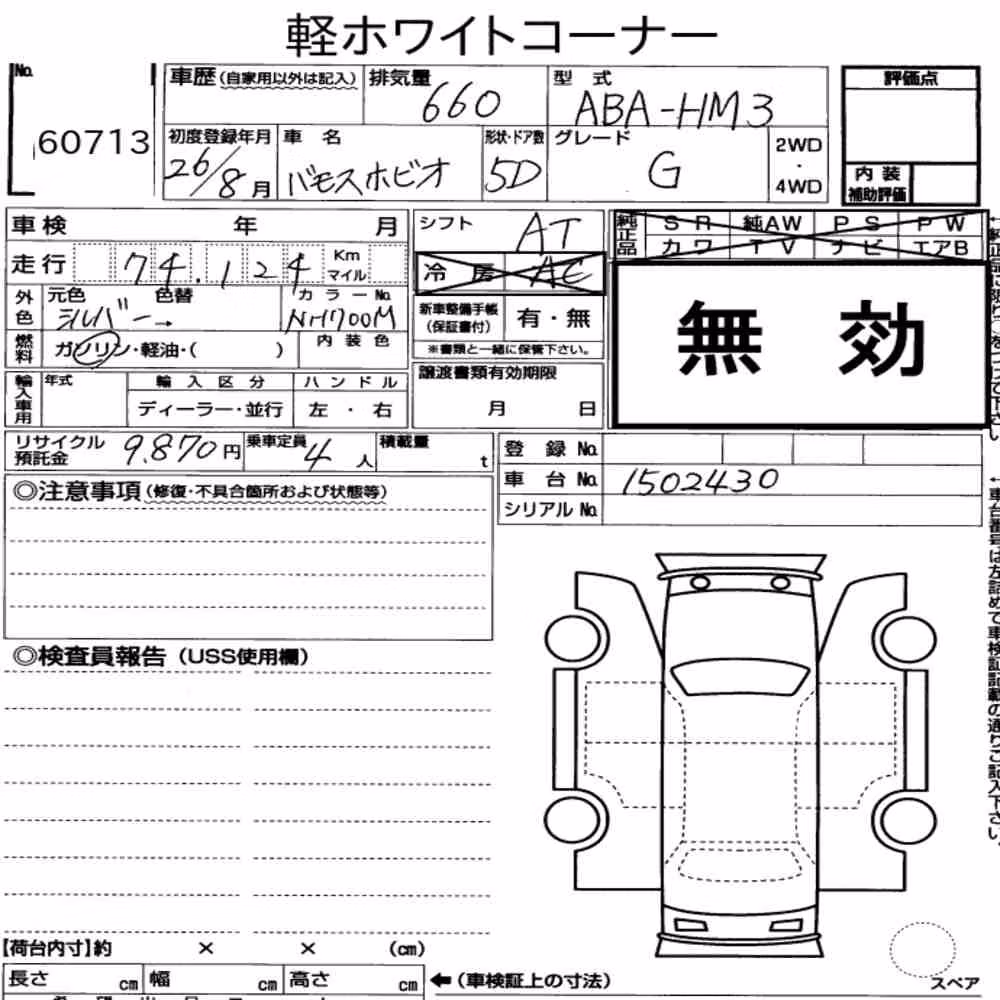 軽ホワイトコーナー
No.
60713
車歴(自家用以外は記入)
排気量
660
型式
ABA-HM3
評価点
初度登録年月
26/8月
車名
バモスホビオ
形状・ドア数
5D
グレード
G
2WD
・
4WD
内装
補助評価
車検 年 月
シフト
AT
純正品
SR 純AW PS PW
カワ TV ナビ エアB
走行 74.124 Km マイル
冷房 AC
外色
元色 色替
シルバー→
カラーNo.
NH700M
新車整備手帳
(保証書付)
有・無
※書類と一緒に保管下さい。
無効
燃料
ガソリン・軽油・( )
内装色
輸入車用
年式
輸入区分
ディーラー・並行
ハンドル
左・右
譲渡書類有効期限
月 日
リサイクル
預託金
9.870円
乗車定員
4人
積載量
t
登録No.
車台No. 1502430
シリアルNo.
◎注意事項(修復・不具合箇所および状態等)
◎検査員報告(USS使用欄)
←車台番号は左詰めで車検証記載の通りご記入下さい。
【荷台内寸】約 × × (cm)
長さ cm 幅 cm 高さ cm
←(車検証上の寸法)
スペア